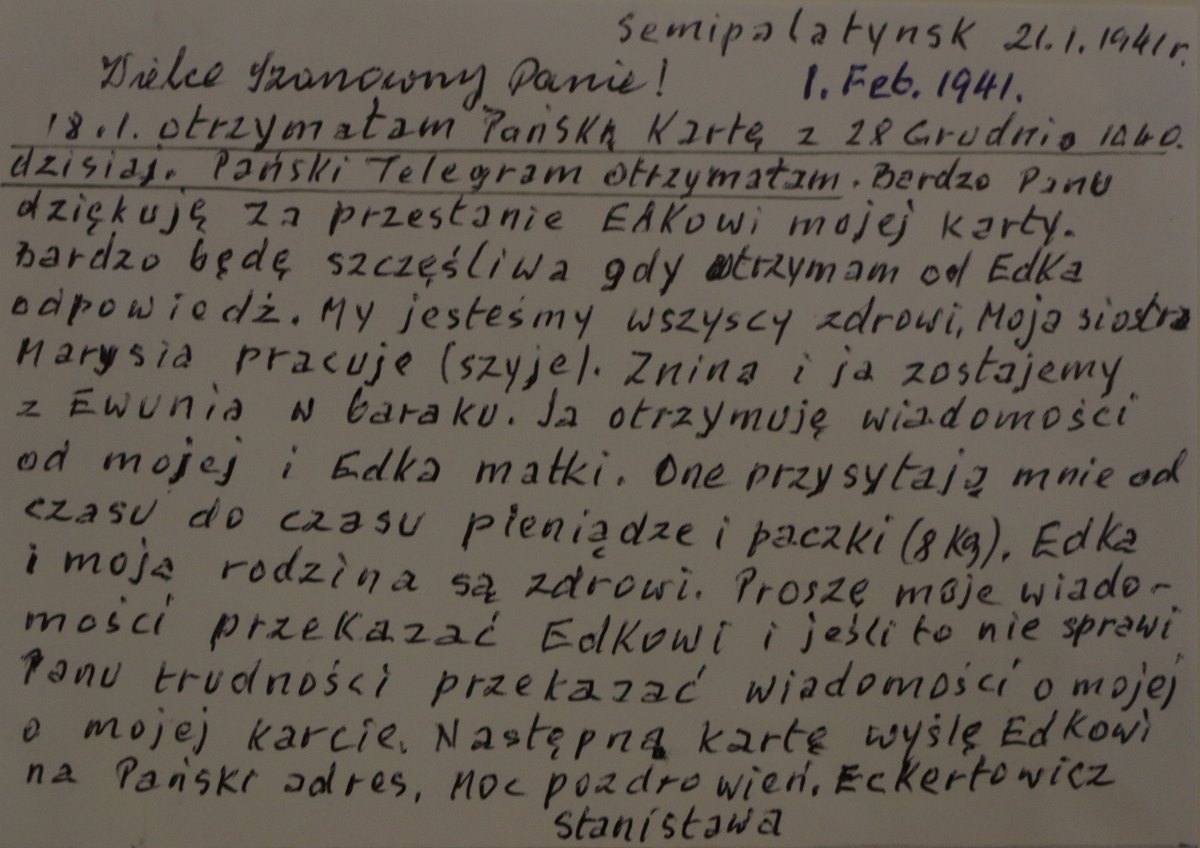 Semipalatynsk 21.1.1941r.
Wielce Szanowny Panie! 1. Feb. 1941.
18.1. otrzymałam Pańską Kartę z 28 Grudnia 1940.
dzisiaj. Pański Telegram otrzymałam. Bardzo Panu
dziękuję za przesłanie Edkowi mojej karty.
Bardzo będę szczęśliwa gdy otrzymam od Edka
odpowiedź. My jesteśmy wszyscy zdrowi, Moja siostra
Marysia pracuje (szyje). Znina i ja zostajemy
z Ewunią w baraku. Ja otrzymuję wiadomości
od mojej i Edka matki. One przysyłają mnie od
czasu do czasu pieniądze i paczki (8 Kg). Edka
i moja rodzina są zdrowi. Proszę moje wiado-
mości przekazać Edkowi i jeśli to nie sprawi
Panu trudności przekazać wiadomości o mojej
o mojej karcie. Następną kartę wyślę Edkowi
na Pański adres. Moc pozdrowień. Eckertowicz
Stanisława